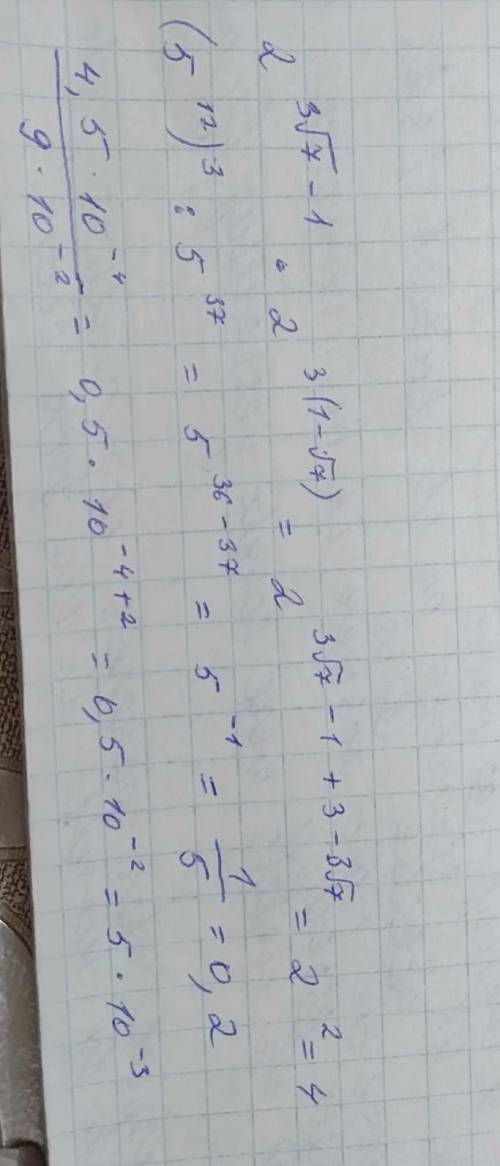 2^{3√7-1} · 2^{3(1-√7)} = 2^{3√7-1+3-3√7} = 2^2 = 4
(5^{12})^3 : 5^{37} = 5^{36-37} = 5^{-1} = \frac{1}{5} = 0,2
\frac{4,5 · 10^{-4}}{9 · 10^{-2}} = 0,5 · 10^{-4+2} = 0,5 · 10^{-2} = 5 · 10^{-3}